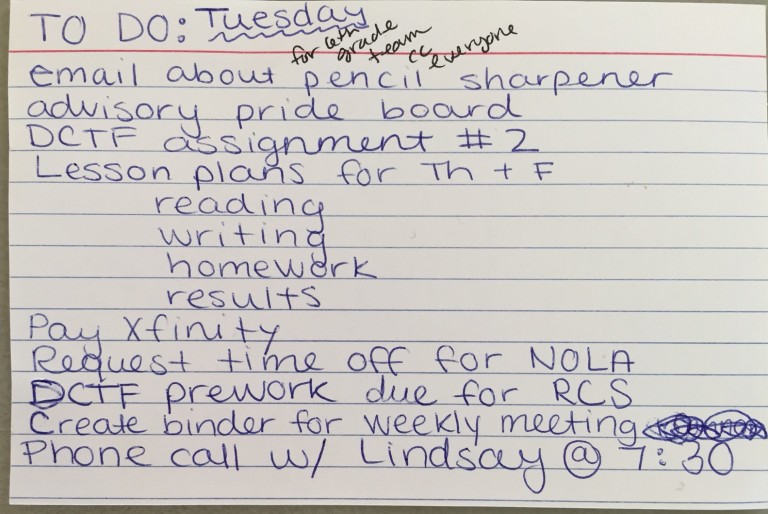 TO DO: Tuesday
for 6th grade team cc everyone
email about pencil sharpener
advisory pride board
DCTF assignment #2
Lesson plans for Th + F
reading
writing
homework
results
Pay Xfinity
Request time off for NOLA
DCTF prework due for RCS
Create binder for weekly meeting
Phone call w/ Lindsay @ 7:30